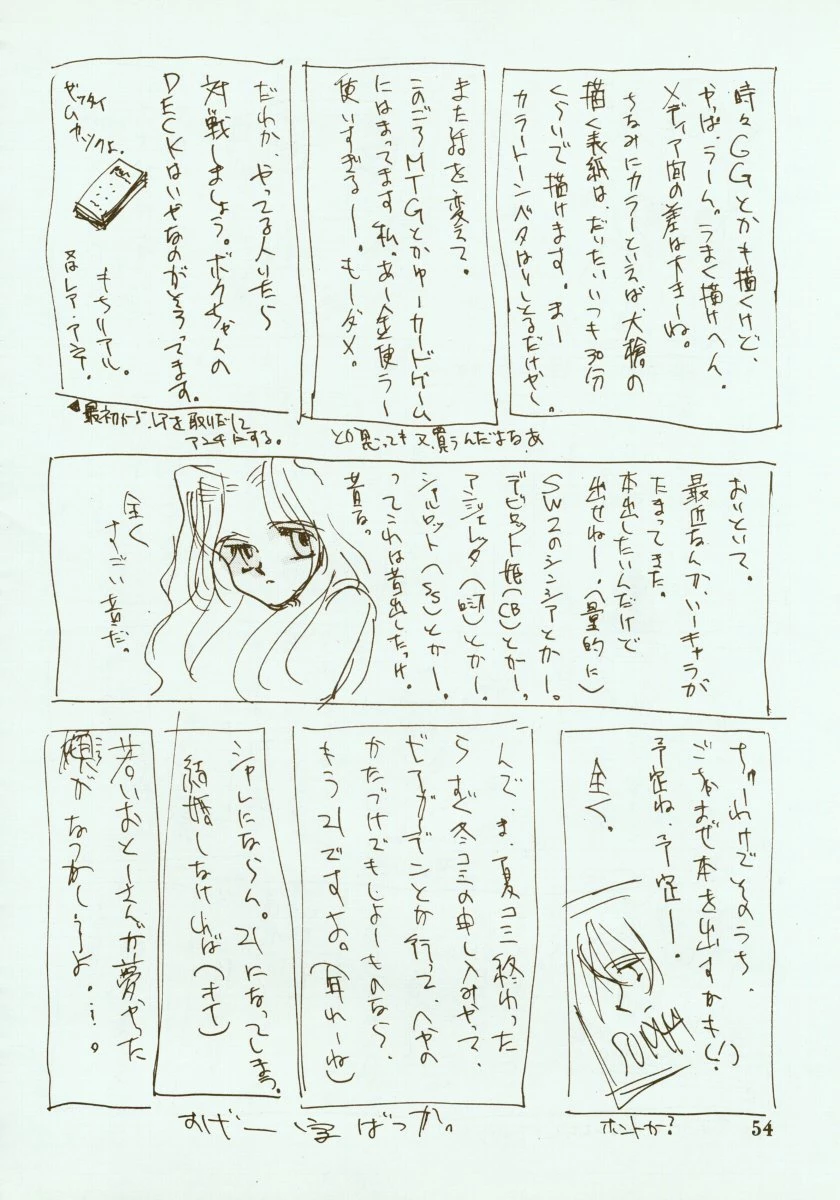 時々GGとかも描くけど、
やっぱ、うーん。うまく描けへん。
メディア間の差は大きーね。
ちなみにカラーといえば、大槍の
描く表紙は、だいたいいつも30分
くらいで描けます。まー
カラートーンベタはりしとるだけやし。
また話を変えて。
このごろMTGとかゆーカードゲーム
にはまってます私。あー金使うー
使いすぎるー。もーダメ。
とか思っても又買うんだよなぁ
だれか、やってる人いたら
対戦しましょう。ボクちゃんの
DECKはいやなのがそろってます。
ゼッタイ
ムカツクよ。
もちリアル。
又はレア・アンテ。
最初から、レアを取りだして
アンテにする。
おいといて。
最近なんか、いーキャラが
たまってきた。
本出したいんだけど
出せねー。(量的に)
SW2のシンシアとかー。
デビロット姫(CB)とかー。
アンジェレッタ
とかー。
シャルロット(SS)とかー。
ってこれは昔出したっけ。
昔な。
全く
すごい昔だ。
ちゅーわけでそのうち、
ごちゃまぜ本を出すかも(!)
予定ね、予定ー。
全く。
ホントか?
んで、ま、夏コミ終わった
らすぐ冬コミの申し込みやって、
ビアガーデンとか行って、へやの
かたづけでもしよーものなら、
もう21ですな。
シャレにならん。21になってしまう。
結婚しなければ
若いおとーさんが夢やった
頃がなつかしいよ・・・。
すげー字ばっか。
54